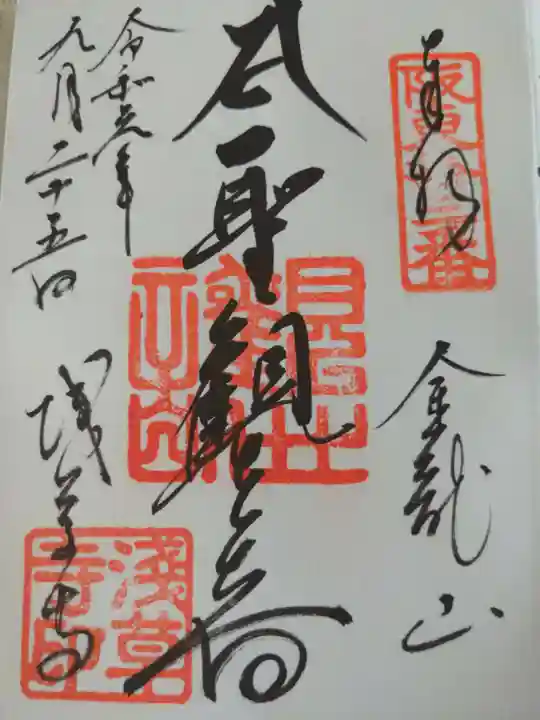 奉拝
阪東拾三番
金龍山
聖觀世音
令和元年
九月二十五日
浅草寺
淺草寺印